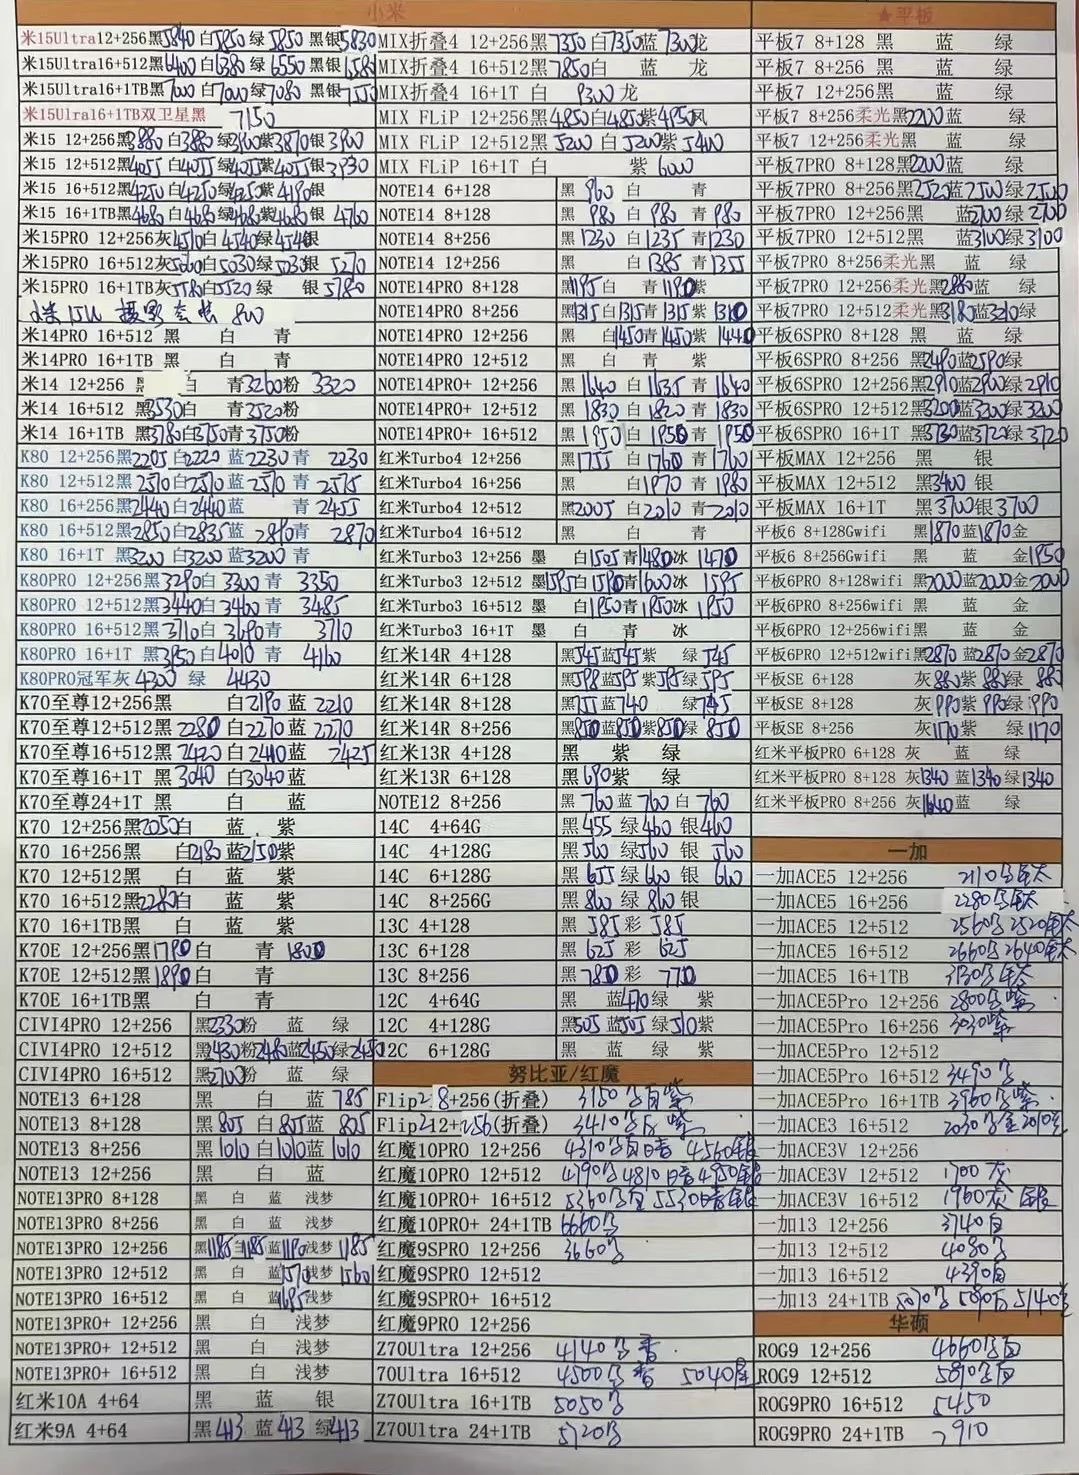 小米
米15Ultra12+256黑5840 白5850 绿 5850 黑银5830
米15Ultra16+512黑6400 白6380 绿 6550 黑银6580
米15Ultra16+1TB黑7000 白7000绿7080 黑银7550
米15Ulra16+1TB双卫星黑 7150
米15 12+256黑3880白3880 绿3900紫3870银3900
米15 12+512黑4055白4055绿4055紫4055银3930
米15 16+512黑4250白4250绿4250紫4190银
米15 16+1TB黑4680白4680绿4680紫4680银 4760
米15PRO 12+256灰4510白4540绿4540银
米15PRO 16+512灰5000白5030绿5030银 5270
米15PRO 16+1TB灰5580白5520 绿 银5780
小米15U 摄影套装 800
米14PRO 16+512 黑 白 青
米14PRO 16+1TB 黑 白 青
米14 12+256 白 青3260粉 3320
米14 16+512 黑3530白 青3520粉
米14 16+1TB 黑3780白3750青3750粉
K80 12+256黑2205白2220 蓝2230青 2230
K80 12+512黑2570白2570蓝2570 青 2575
K80 16+256黑2440白2440蓝 青 2455
K80 16+512黑2850白2835蓝 2810青 2870
K80 16+1T 黑3200 白3200 蓝3200 青
K80PRO 12+256黑3290白 3300 青 3350
K80PRO 12+512黑3440白 3460 青 3485
K80PRO 16+512黑3710白 3690青 3710
K80PRO 16+1T 黑3950白4010 青 4160
K80PRO冠军灰 4300 绿 4430
K70至尊12+256黑 白2190 蓝 2210
K70至尊12+512黑 2280 白2270 蓝 2270
K70至尊16+512黑2420 白2410蓝 2425
K70至尊16+1T 黑3040 白3040蓝
K70至尊24+1T 黑 白 蓝
K70 12+256黑2050白 蓝 紫
K70 16+256黑 白2180 蓝2150紫
K70 12+512黑 白 蓝 紫
K70 16+512黑2280白 蓝 紫
K70 16+1TB黑 白 蓝 紫
K70E 12+256黑1790白 青 1800
K70E 12+512黑1890白 青
K70E 16+1TB黑 白 青
CIVI4PRO 12+256 黑2330粉 蓝 绿
CIVI4PRO 12+512 黑2430粉2480蓝2450绿2450
CIVI4PRO 16+512 黑2700粉 蓝 绿
NOTE13 6+128 黑 白 蓝 785
NOTE13 8+128 黑805 白805蓝 805
NOTE13 8+256 黑1010 白1010蓝1010
NOTE13 12+256 黑 白 蓝
NOTE13PRO 8+128 黑 白 蓝 浅梦
NOTE13PRO 8+256 黑 白 蓝 浅梦
NOTE13PRO 12+256 黑1185白1185蓝1190浅梦 1185
NOTE13PRO 12+512 黑 白 蓝1570浅梦 1560
NOTE13PRO 16+512 黑 白 蓝1685浅梦
NOTE13PRO+ 12+256 黑 白 浅梦
NOTE13PRO+ 12+512 黑 白 浅梦
NOTE13PRO+ 16+512 黑 白 浅梦
红米10A 4+64 黑 蓝 银
红米9A 4+64 黑413 蓝413 绿413
MIX折叠4 12+256黑7350白7350蓝7300龙
MIX折叠4 16+512黑7850白 蓝 龙
MIX折叠4 16+1T 白 9300龙
MIX FLiP 12+256黑4850白4850紫4950凤
MIX FLiP 12+512黑5200 白5200紫5400
MIX FLiP 16+1T 白 紫 6000
NOTE14 6+128 黑 960 白 青
NOTE14 8+128 黑 980 白 980 青 980
NOTE14 8+256 黑1230 白1235 青1230
NOTE14 12+256 黑 白1385 青1355
NOTE14PRO 8+128 黑1195白 青1180紫
NOTE14PRO 8+256 黑1315白1315青1315紫1310
NOTE14PRO 12+256 黑 白1450青1450紫1440
NOTE14PRO 12+512 黑 白 青 紫
NOTE14PRO+ 12+256 黑1640 白1635 青1640
NOTE14PRO+ 12+512 黑1830 白1820 青1830
NOTE14PRO+ 16+512 黑1950 白1950青1950
红米Turbo4 12+256 黑1755 白1760 青1760
红米Turbo4 16+256 黑 白1970 青1980
红米Turbo4 12+512 黑2005 白2010 青2010
红米Turbo4 16+512 黑 白 青
红米Turbo3 12+256 墨 白1505青1480冰 1470
红米Turbo3 12+512 墨1595白1590青1600冰 1595
红米Turbo3 16+512 墨 白1950青1950冰 1950
红米Turbo3 16+1T 墨 白 青 冰
红米14R 4+128 黑545蓝545紫 绿545
红米14R 6+128 黑598蓝595紫595绿595
红米14R 8+128 蓝740 绿745
红米14R 8+256 黑850蓝850紫850绿850
红米13R 4+128 黑 紫 绿
红米13R 6+128 黑690紫 绿
NOTE12 8+256 黑 760 蓝760 白 760
14C 4+64G 黑 455 绿460 银460
14C 4+128G 黑560 绿560 银 560
14C 6+128G 黑 655 绿660 银 660
14C 8+256G 黑 860 绿860银
13C 4+128 黑 585 彩 585
13C 6+128 黑 625 彩 625
13C 8+256 黑780 彩 770
12C 4+64G 黑 蓝470绿 紫
12C 4+128G 黑505蓝505绿510紫
12C 6+128G 黑 蓝 绿 紫
努比亚/红魔
Flip2 8+256(折叠) 3150
Flip2 12+256(折叠) 3410
红魔10PRO 12+256 4310 4560银
红魔10PRO 12+512 4790 4810暗 4950银
红魔10PRO+ 16+512 5360 5530暗银
红魔10PRO+ 24+1TB 6660
红魔9SPRO 12+256 3660
红魔9SPRO 12+512
红魔9SPRO+ 16+512
红魔9PRO 12+256
Z70Ultra 12+256 4140
70Ultra 16+512 4500 5040
Z70Ultra 16+1TB 5050
Z70Ultra 24+1TB 5720
★平板
平板7 8+128 黑 蓝 绿
平板7 8+256 黑 蓝 绿
平板7 12+256 黑 蓝 绿
平板7 8+256柔光黑2200蓝 绿
平板7 12+256柔光黑 蓝 绿
平板7PRO 8+128黑2200蓝 绿
平板7PRO 8+256黑2520蓝2500绿2500
平板7PRO 12+256黑 蓝2700绿 2700
平板7PRO 12+512黑 蓝3100绿3100
平板7PRO 8+256柔光黑 蓝 绿
平板7PRO 12+256柔光黑2880蓝 绿
平板7PRO 12+512柔光黑3180蓝3210绿
平板6SPRO 8+128 黑 蓝 绿
平板6SPRO 8+256 黑2490蓝2590绿
平板6SPRO 12+256黑2910蓝2900绿2910
平板6SPRO 12+512黑3200蓝3200绿3200
平板6SPRO 16+1T 黑3730蓝3720绿3720
平板MAX 12+256 黑 银
平板MAX 12+512 黑3400银
平板MAX 16+1T 黑3700银3700
平板6 8+128Gwifi 黑1870蓝1870金
平板6 8+256Gwifi 黑 蓝 金1950
平板6PRO 8+128wifi 黑2000蓝2000金2000
平板6PRO 8+256wifi 黑 蓝 金
平板6PRO 12+256wifi黑 蓝 金
平板6PRO 12+512wifi黑2870蓝2870金2870
平板SE 6+128 灰880紫 880绿 880
平板SE 8+128 灰990紫 990绿990
平板SE 8+256 灰1170紫 绿1170
红米平板PRO 6+128 灰 蓝 绿
红米平板PRO 8+128 灰1340 蓝1340绿1340
红米平板PRO 8+256 灰1640蓝 绿
一加
一加ACE5 12+256 2110
一加ACE5 16+256 2280
一加ACE5 12+512 2560 2520
一加ACE5 16+512 2660 2640
一加ACE5 16+1TB 3130
一加ACE5Pro 12+256 2800
一加ACE5Pro 16+256 3030紫
一加ACE5Pro 12+512
一加ACE5Pro 16+512 3490
一加ACE5Pro 16+1TB 3960
一加ACE3 16+512 2030 2010
一加ACE3V 12+256
一加ACE3V 12+512 1700 灰
一加ACE3V 16+512 1960灰 银
一加13 12+256 3740白
一加13 12+512 4080
一加13 16+512 4390白
一加13 24+1TB 5070 5090 5140
华硕
ROG9 12+256 4660
ROG9 12+512 5890
ROG9PRO 16+512 5450
ROG9PRO 24+1TB 7910